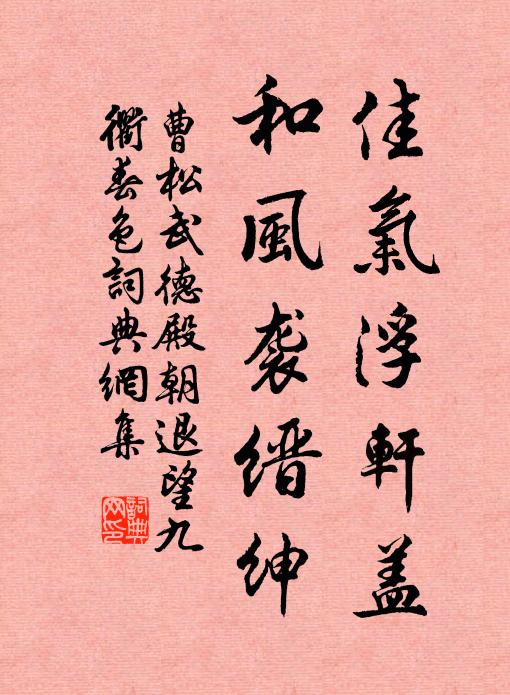 佳氣浮軒蓋
和風袭缙紳
曹松武德殿朝退望九
衢春色詞典網集
詞典网印